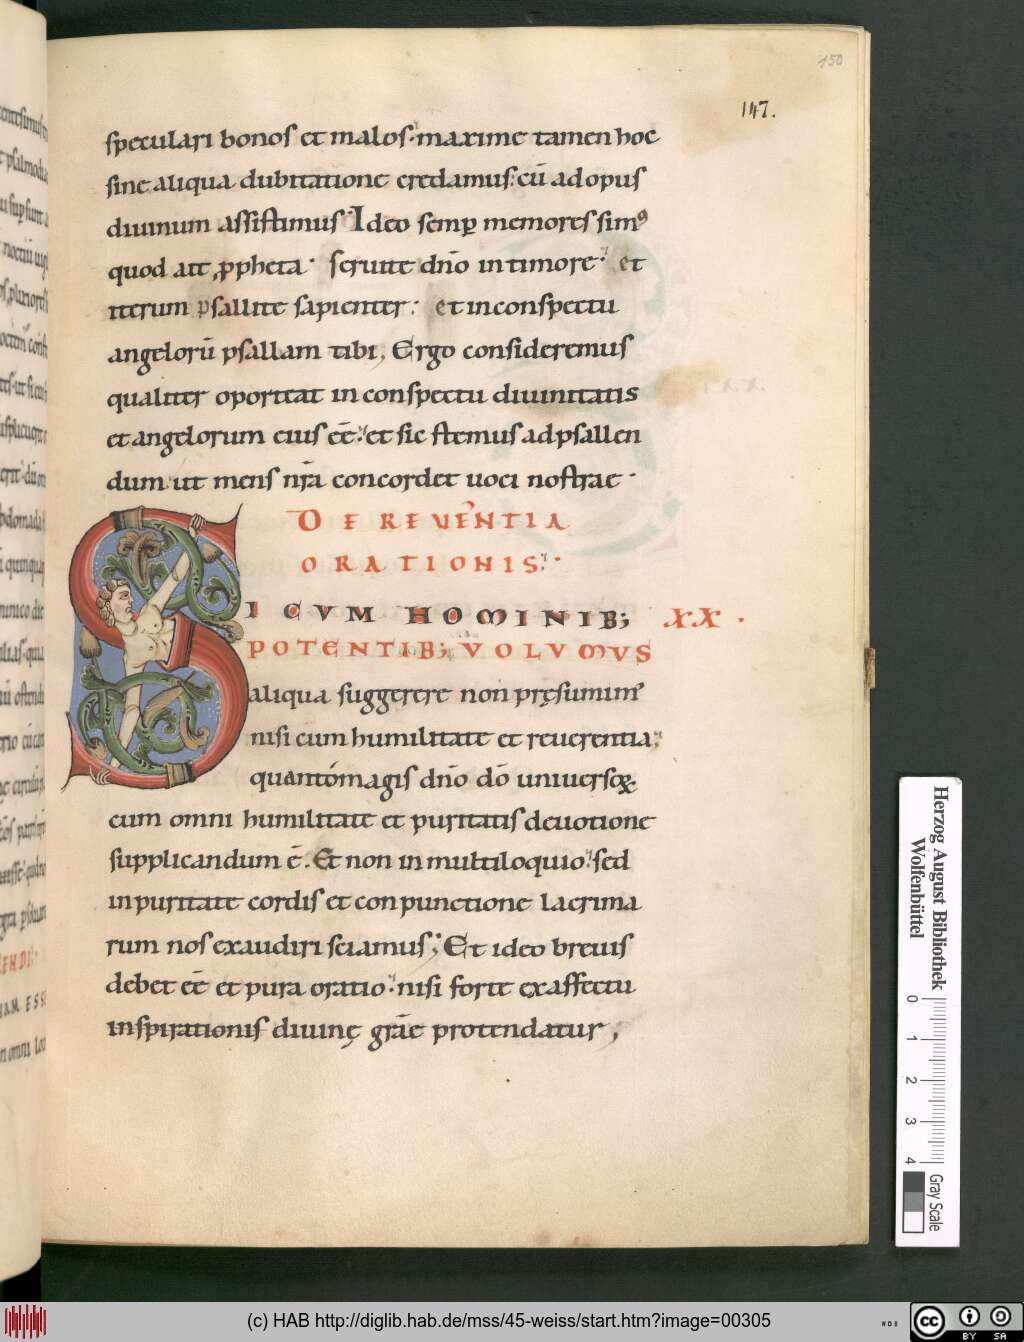 150
147.
speculari bonos et malos. maxime tamen hoc
sine aliqua dubitatione credamus. cū ad opus
diuinum assistimus. Ideo semꝑ memores simꝰ
quod ait ꝓpheta. seruite dn̄o in timore. et
iterum psallite sapienter. et in conspectu
angelorū psallam tibi. Ergo consideremus
qualiter oporteat in conspectu diuinitatis
et angelorum eius eē. et sic stemus ad psallen
dum ut mens nr̄a concordet uoci nostrae.
DE REVERENTIA
ORATIONIS.
SI CVM HOMINIB; XX.
POTENTIB; VOLVMVS
aliqua suggerere non pręsumimꝰ
nisi cum humilitate et reuerentia.
quantomagis dn̄o dō uniuersoꝝ
cum omni humilitate et puritatis deuotione
supplicandum ē. Et non in multiloquio. sed
in puritate cordis et conpunctione lacrima
rum nos exaudiri sciamus. Et ideo breuis
debet eē et pura oratio. nisi forte ex affectu
inspirationis diuinę grāe protendatur.
Herzog August Bibliothek
Wolfenbüttel
0 1 2 3 4
Gray Scale
(c) HAB http://diglib.hab.de/mss/45-weiss/start.htm?image=00305
cc BY SA